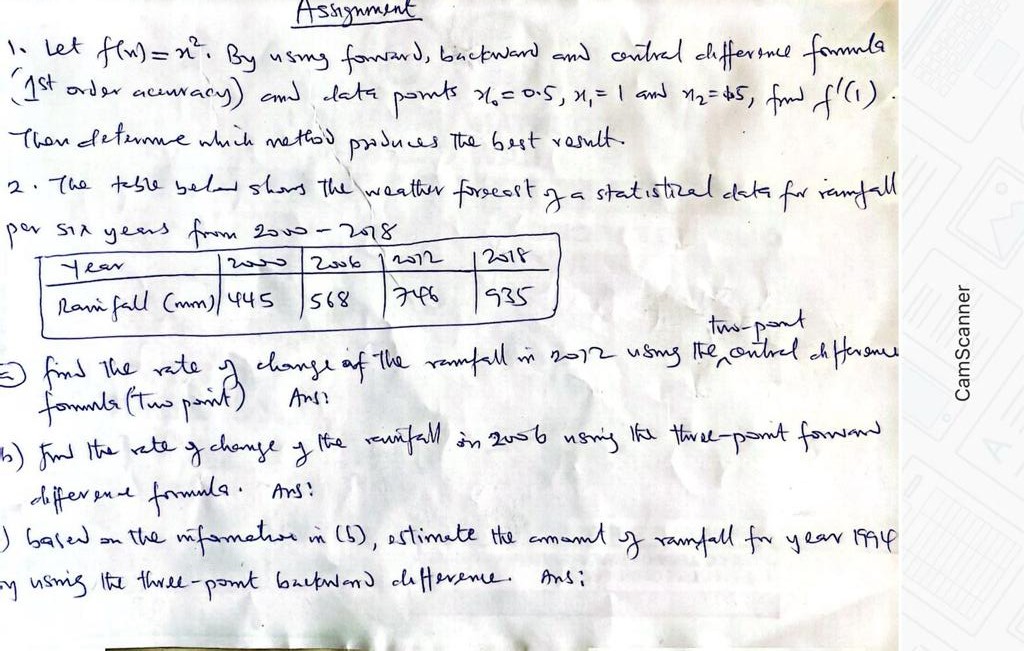 Assignment
1. Let f(x) = x². By using forward, backward and central difference formula
(1st order accuracy) and data points x₀ = 0.5, x₁ = 1 and x₂ = 1.5, find f'(1).
Then determine which method produces the best result.
2. The table below shows the weather forecast of a statistical data for rainfall
per six years from 2000 - 2018
Year | 2000 | 2006 | 2012 | 2018
Rainfall (mm) | 445 | 568 | 746 | 935
two-point
a) find the rate of change of the rainfall in 2012 using the central difference
formula (Two point) Ans:
b) Find the rate of change of the rainfall in 2006 using the three-point forward
difference formula. Ans:
) based on the information in (b), estimate the amount of rainfall for year 1994
by using the three-point backward difference. Ans:
CamScanner